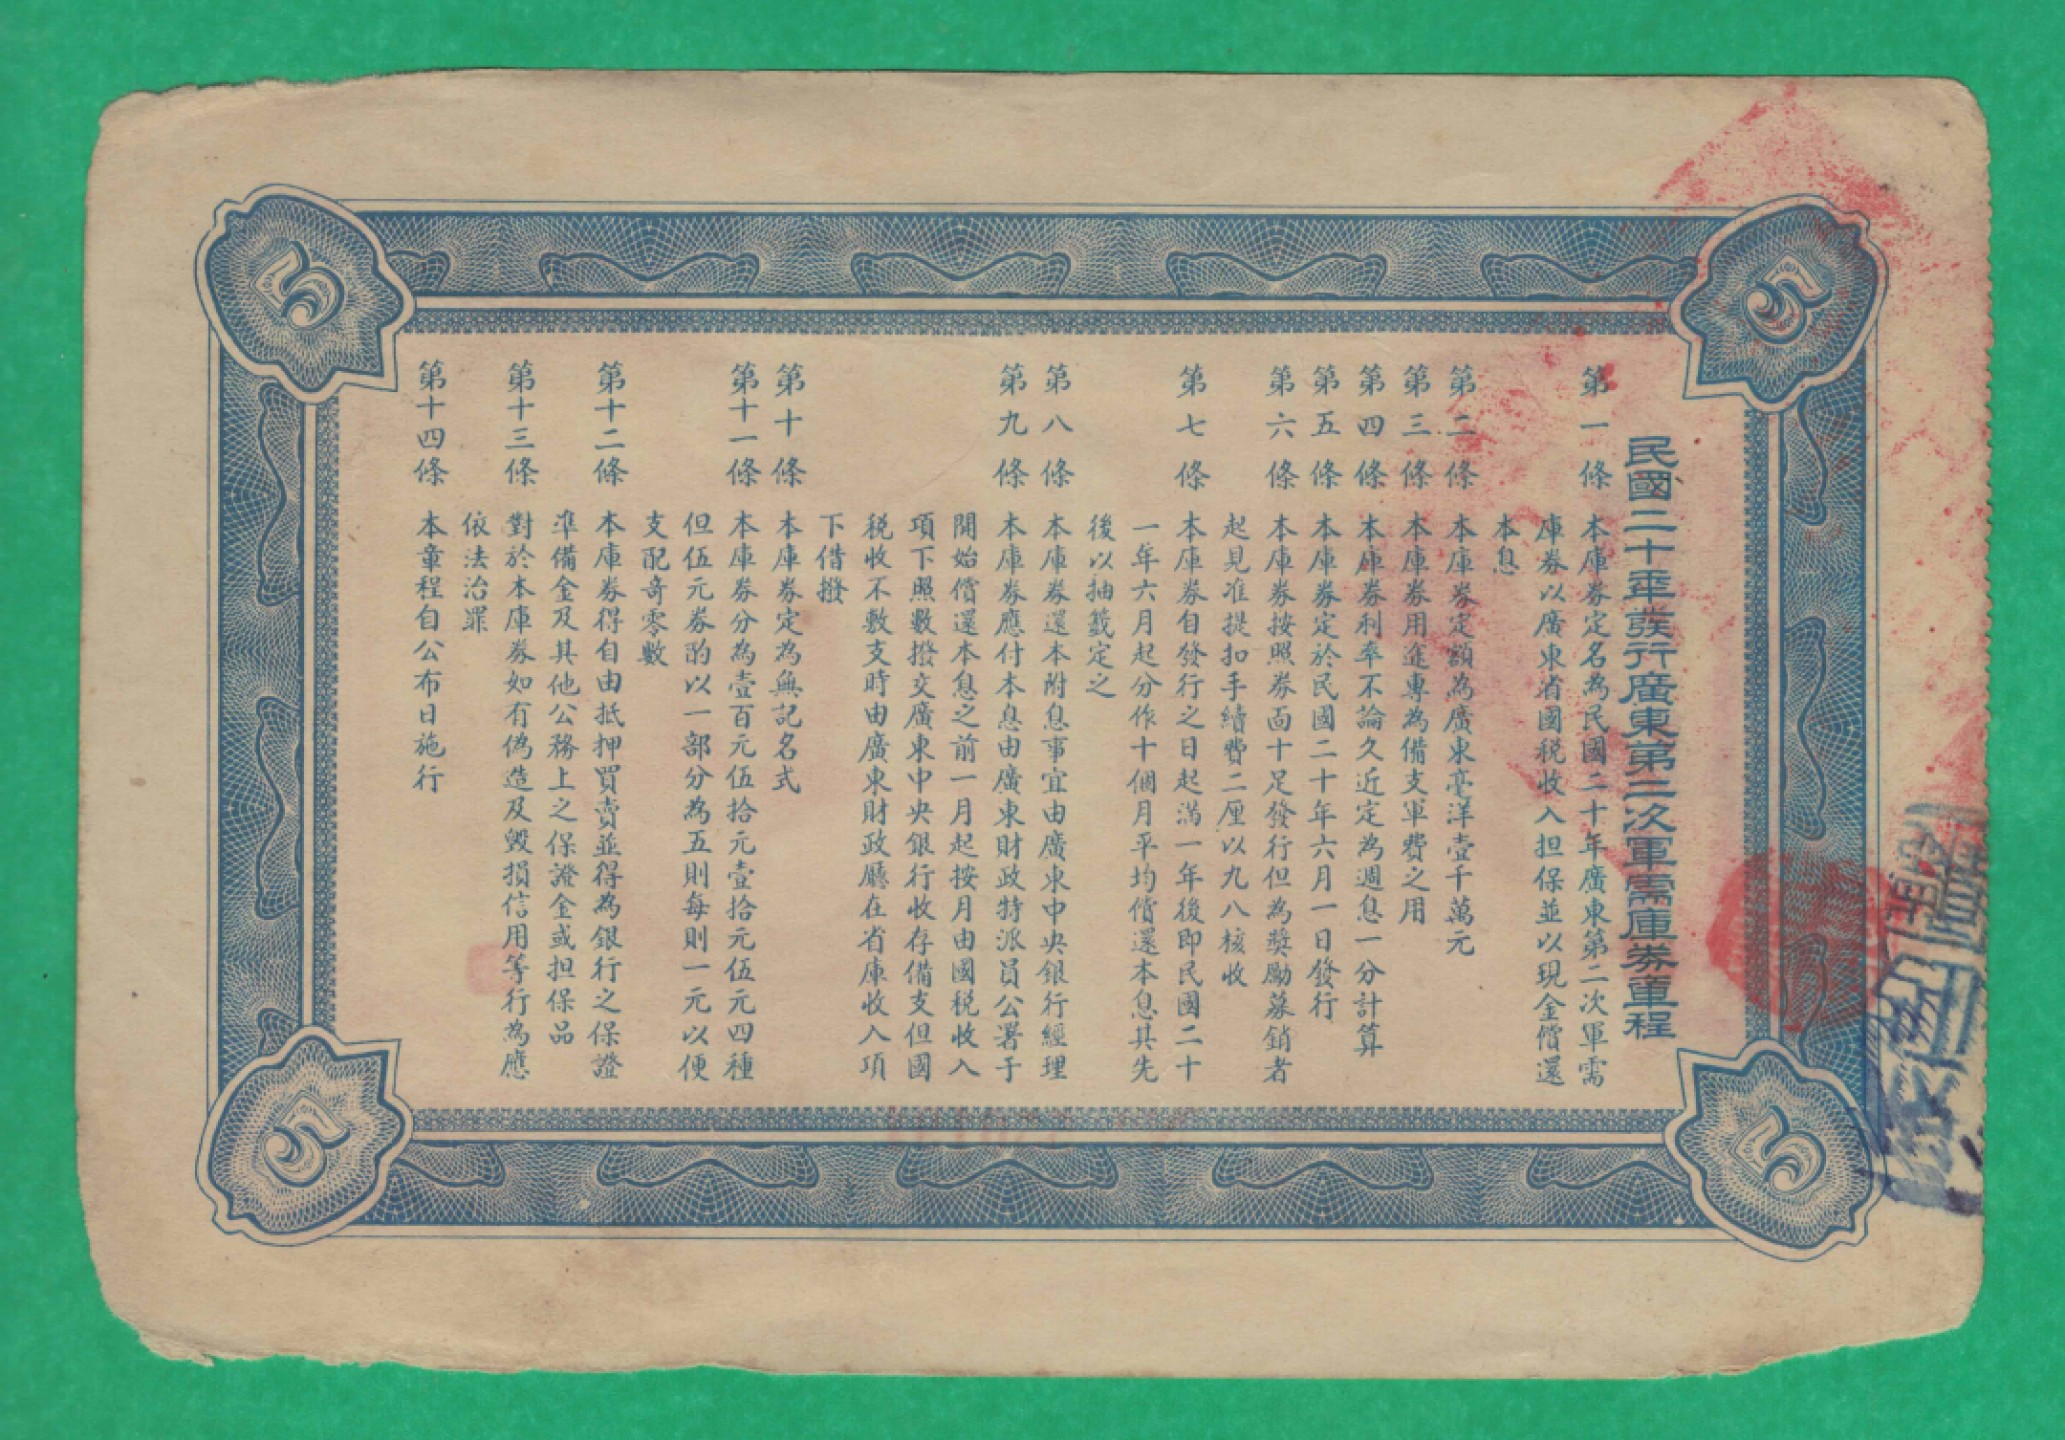 民國二十年發行廣東第二次軍需庫券章程
第一條 本庫券定名為民國二十年廣東第二次軍需
庫券以廣東省國稅收入担保並以現金償還
本息
第二條 本庫券定額為廣東毫洋壹千萬元
第三條 本庫券用途專為備支軍費之用
第四條 本庫券利率不論久近定為週息一分計算
第五條 本庫券定於民國二十年六月一日發行
第六條 本庫券按照券面十足發行但為獎勵募銷者
起見准提扣手續費二厘以九八核收
第七條 本庫券自發行之日起滿一年後即民國二十
一年六月起分作十個月平均償還本息其先
後以抽籤定之
第八條 本庫券還本附息事宜由廣東中央銀行經理
第九條 本庫券應付本息由廣東財政特派員公署于
開始償還本息之前一月起按月由國稅收入
項下照數撥交廣東中央銀行收存備支但國
稅收不敷支時由廣東財政廳在省庫收入項
下借撥
第十條 本庫券定為無記名式
第十一條 本庫券分為壹百元伍拾元壹拾元伍元四種
但伍元券酌以一部分為五則每則一元以便
支配奇零數
第十二條 本庫券得自由抵押買賣並得為銀行之保證
準備金及其他公務上之保證金或担保品
第十三條 對於本庫券如有偽造及毀損信用等行為應
依法治罪
第十四條 本章程自公布日施行
5
5
5
5